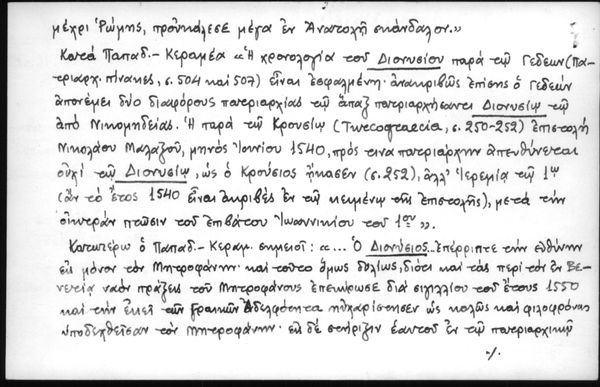 μέχρι Ῥώμης, προὐκάλεσε μέγα ἐν Ἀνατολῇ σκάνδαλον.»
Κατά Παπαδ.-Κεραμέα «Ἡ χρονολογία τοῦ Διονυσίου παρά τῷ Γεδεών (Πα-
τριαρχ. πίνακες, σ. 504 καί 507) εἶναι ἐσφαλμένη· ἀνακριβῶς ἐπίσης ὁ Γεδεών
ἀπονέμει δύο διαφόρους πατριαρχίας τῷ ἅπαξ πατριαρχήσαντι Διονυσίῳ τῷ
ἀπό Νικομηδείας. Ἡ παρά τῷ Κρουσίῳ (Turcograecia, σ. 250-252) ἐπιστολή
Νικολάου Μαλαξοῦ, μηνός Ἰουνίου 1540, πρός τινα πατριάρχην ἀπευθύνεται
οὐχί τῷ Διονυσίῳ, ὡς ὁ Κρούσιος ᾔκασεν (σ. 252), ἀλλ' Ἱερεμίᾳ τῷ 1ῳ
(ἄν τό ἔτος 1540 εἶναι ἀκριβές ἐν τῷ κειμένῳ τῆς ἐπιστολῆς), μετά τήν
οἰκτράν πτῶσιν τοῦ ἐπιβάτου Ἰωαννικίου τοῦ 1ου».
Κατωτέρω ὁ Παπαδ.-Κεραμ. σημειοῖ: «... Ὁ Διονύσιος.. ἐπέρριπτε τήν εὐθύνην
εἰς μόνον τόν Μητροφάνην· καί τοῦτο ὅμως δολίως, διότι καί τάς περί τόν ἐν Βε-
νετίᾳ ναόν πράξεις τοῦ Μητροφάνους ἐπεκύρωσε διά σιγιλλίου τοῦ ἔτους 1550
καί τήν ἐκεῖ τῶν Γραικῶν Ἀδελφότητα ηὐχαρίστησεν ὡς καλῶς καί φιλοφρόνως
ὑποδεχθεῖσαν τόν Μητροφάνην· εἰς δέ στήριξιν ἑαυτοῦ ἐν τῷ πατριαρχικῷ
./.